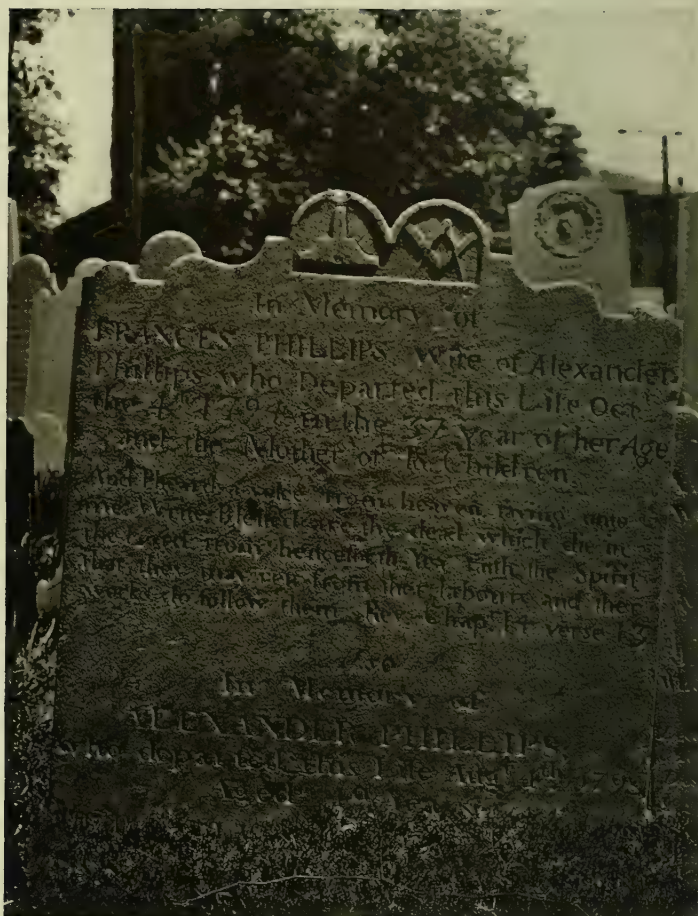 In Memory of
FRANCES PHILLIPS Wife of Alexander
Phillips who Departed this Life Octr.
the 4th 1794 in the 37 Year of her Age
and the Mother of Children.
And I heard a voice from heaven saying unto
me. Write. Blessed are the dead which die in
the Lord from henceforth Yea saith the Spirit
that they may rest from their labours and their
works do follow them. Rev. Chap. 14 verse 13
Also
In Memory of
ALEXANDER PHILLIPS
who departed this Life Augt.
Aged